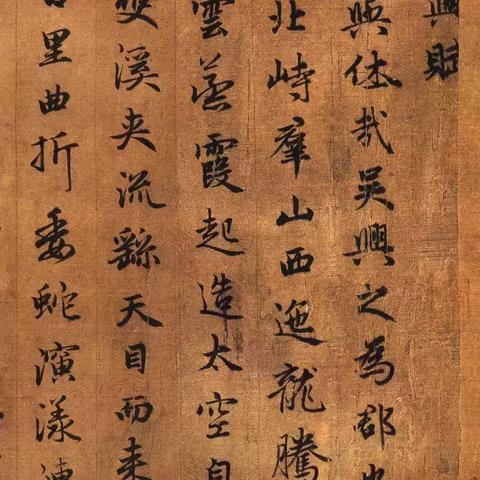 興賦
與休哉吳興之為郡也
北峙羣山西迤龍騰
雲蒸霞起造太空自
雙溪夾流繇天目而来
百里曲折委蛇演漾漣